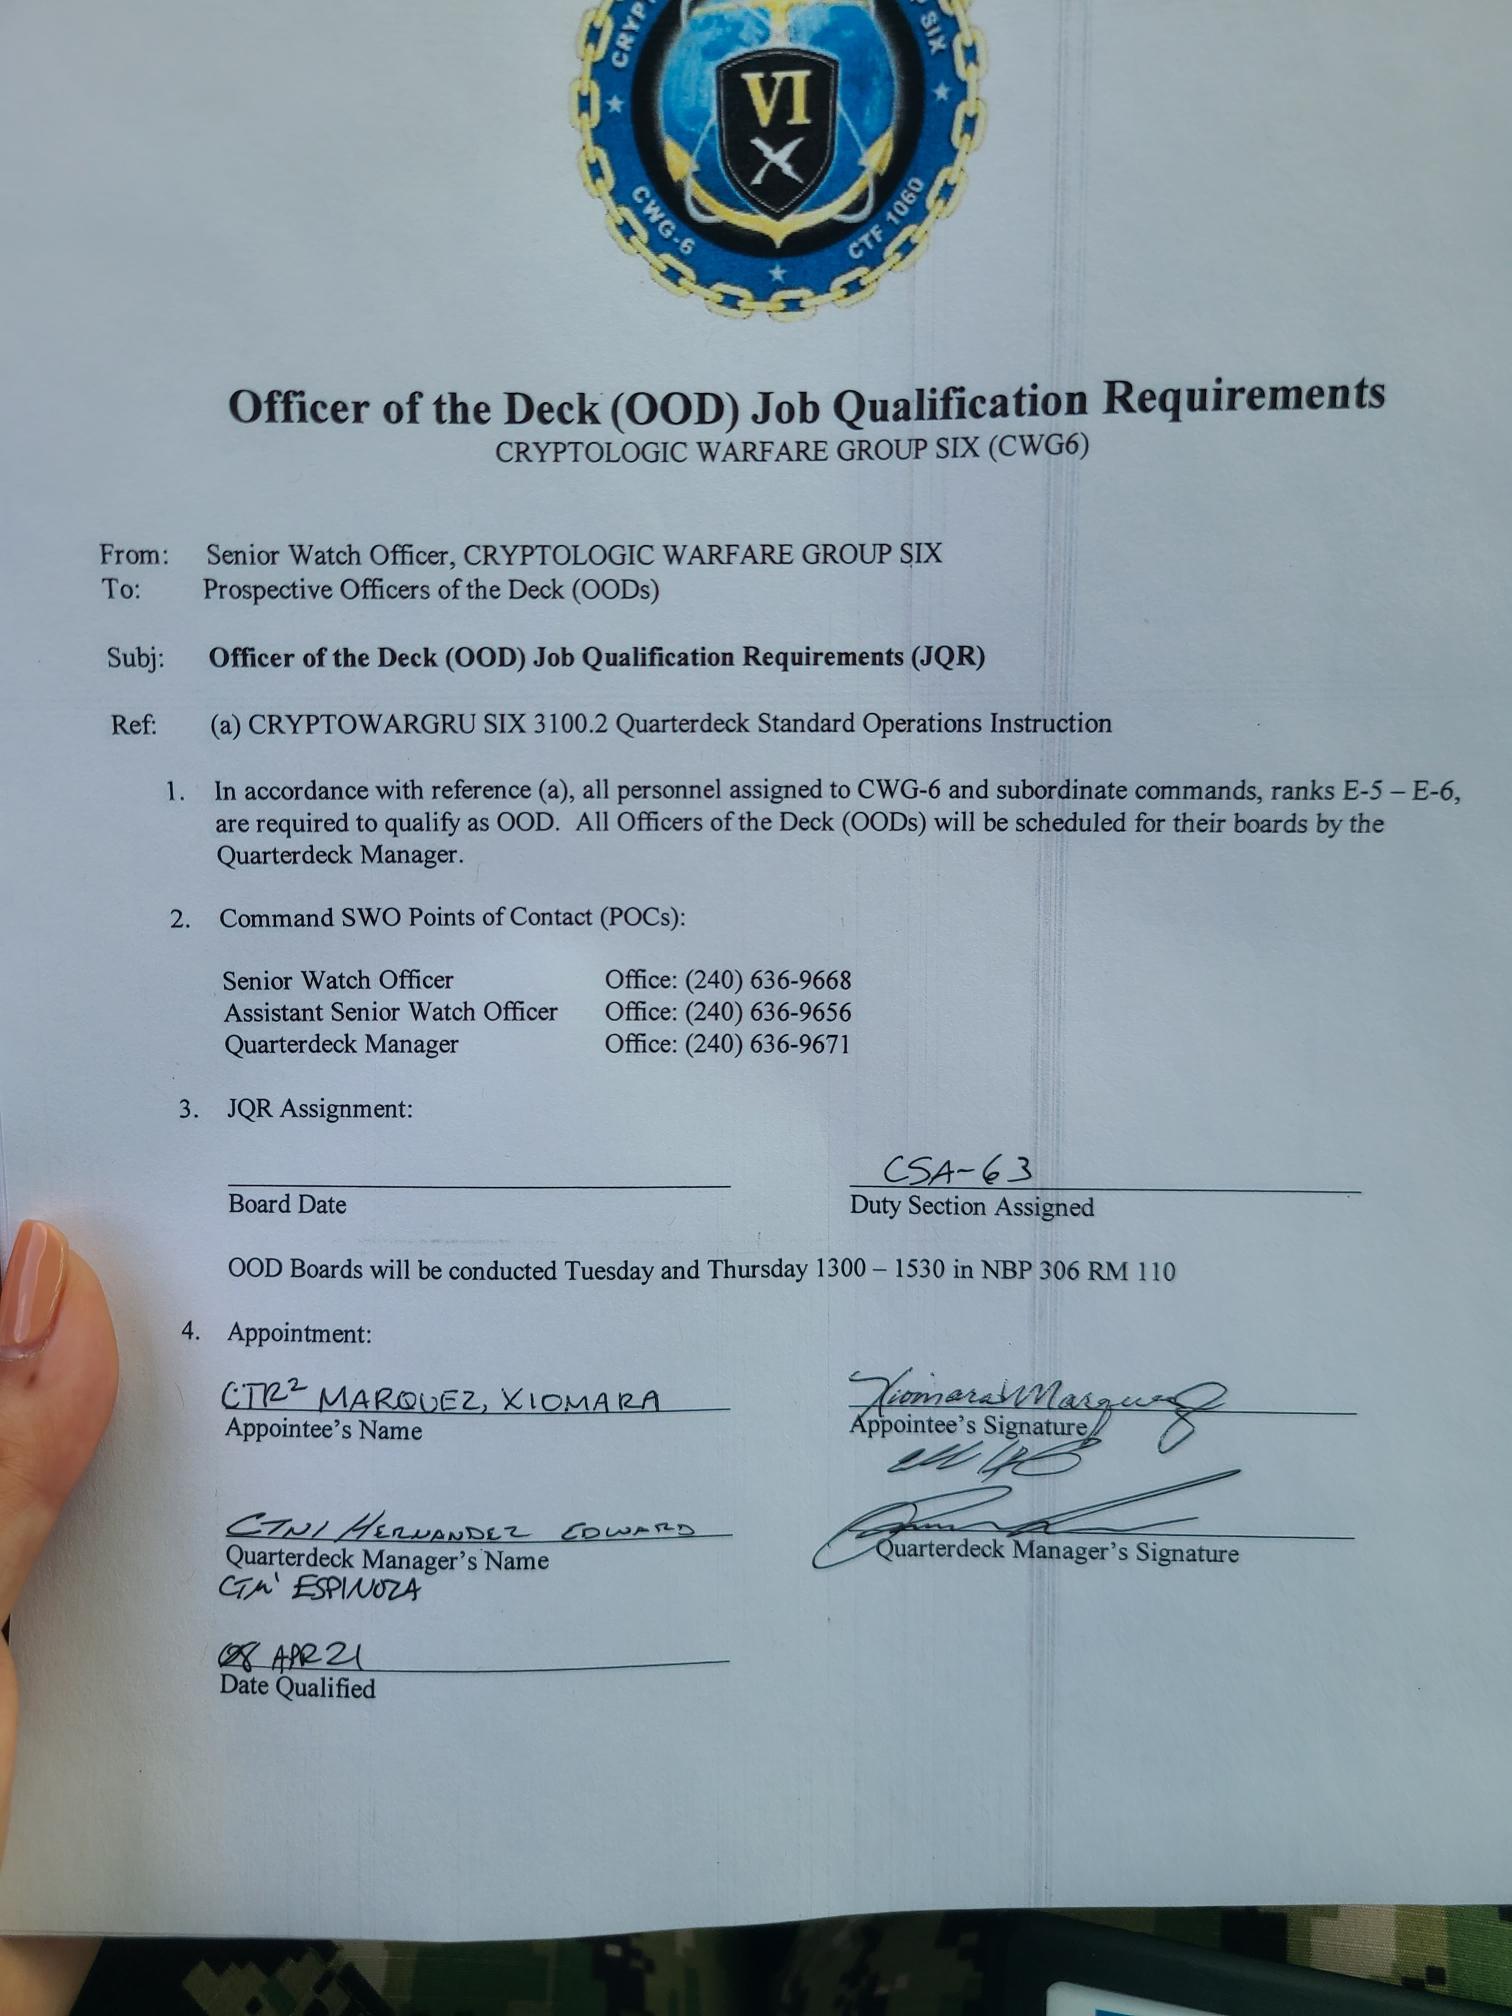 CRYP SIX
VI
CWG-6 CTF 1060
Officer of the Deck (OOD) Job Qualification Requirements
CRYPTOLOGIC WARFARE GROUP SIX (CWG6)
From: Senior Watch Officer, CRYPTOLOGIC WARFARE GROUP SIX
To: Prospective Officers of the Deck (OODs)
Subj: Officer of the Deck (OOD) Job Qualification Requirements (JQR)
Ref: (a) CRYPTOWARGRU SIX 3100.2 Quarterdeck Standard Operations Instruction
1. In accordance with reference (a), all personnel assigned to CWG-6 and subordinate commands, ranks E-5 – E-6,
are required to qualify as OOD. All Officers of the Deck (OODs) will be scheduled for their boards by the
Quarterdeck Manager.
2. Command SWO Points of Contact (POCs):
Senior Watch Officer Office: (240) 636-9668
Assistant Senior Watch Officer Office: (240) 636-9656
Quarterdeck Manager Office: (240) 636-9671
3. JQR Assignment:
CSA-63
Board Date Duty Section Assigned
OOD Boards will be conducted Tuesday and Thursday 1300 – 1530 in NBP 306 RM 110
4. Appointment:
CTR2 MARQUEZ, XIOMARA Xiomara Marquez
Appointee's Name Appointee's Signature
CTN1 HERNANDEZ EDWARD
Quarterdeck Manager's Name Quarterdeck Manager's Signature
ESPINOZA
08 APR 21
Date Qualified